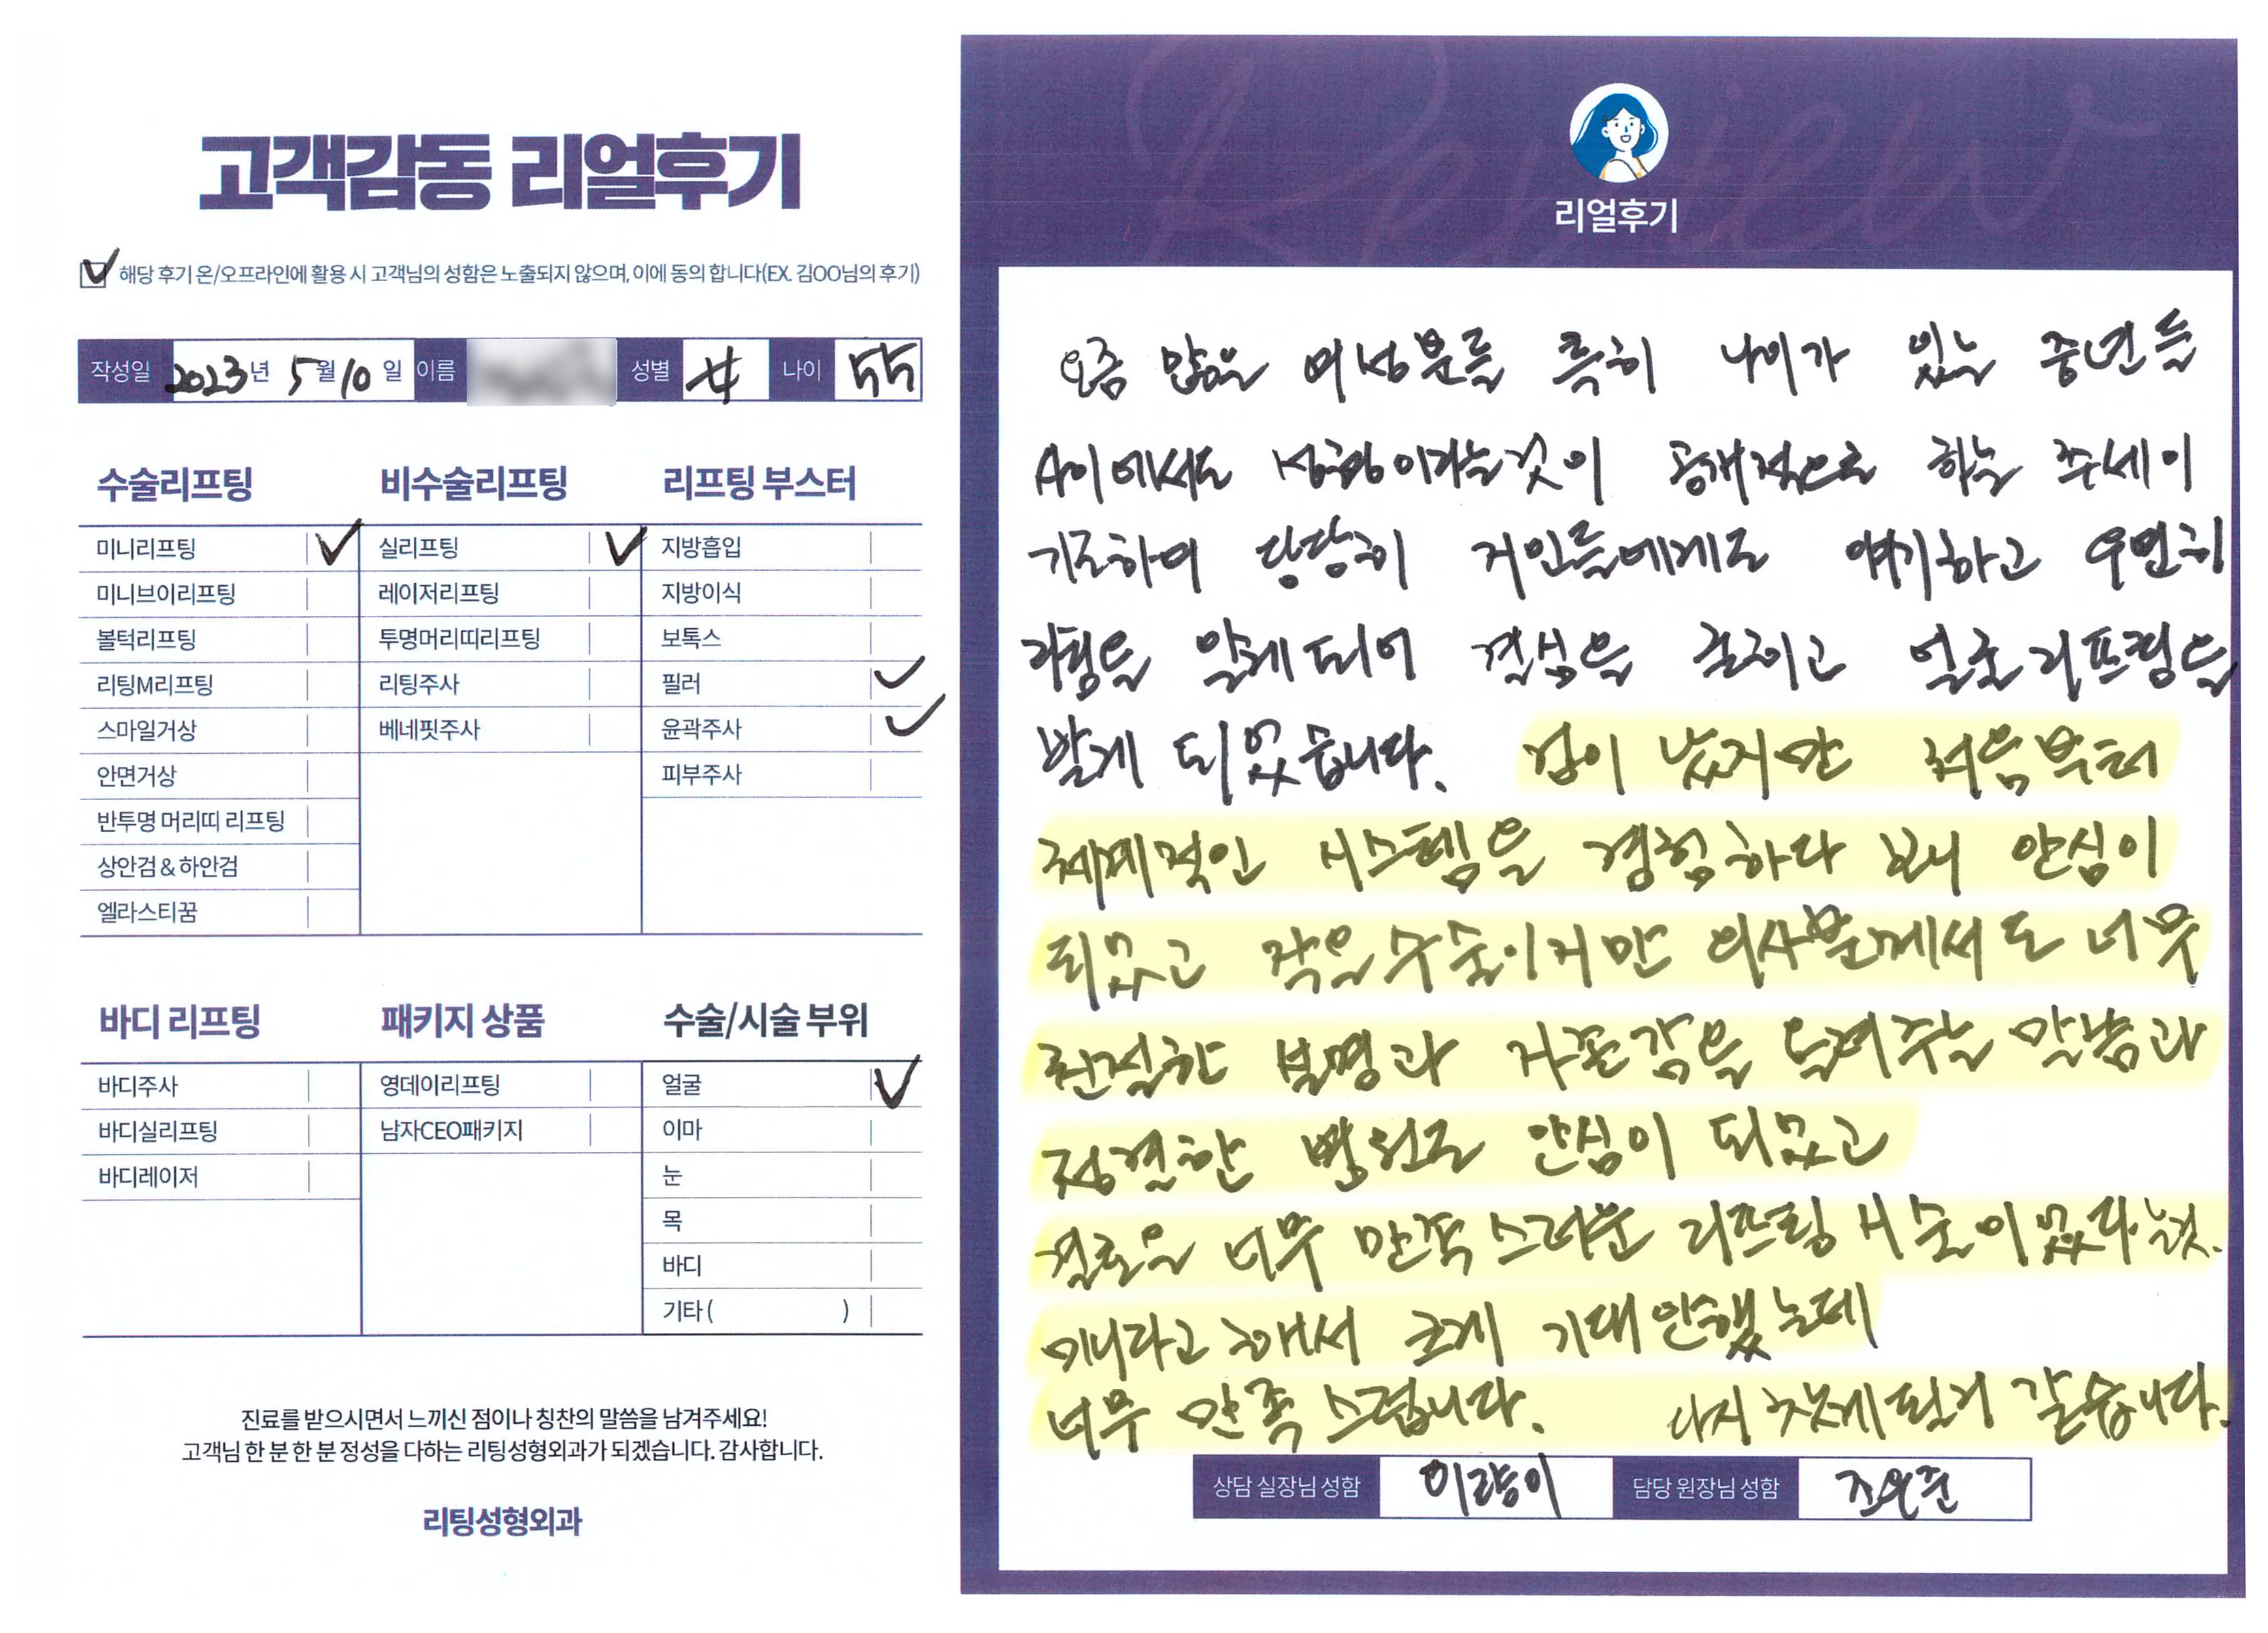 고객감동 리얼후기
해당 후기 온/오프라인에 활용 시 고객님의 성함은 노출되지 않으며, 이에 동의 합니다(EX. 김OO님의 후기)
작성일 2023년 5월 10일 이름 성별 女 나이 55
수술리프팅
미니리프팅
미니브이리프팅
볼턱리프팅
리팅M리프팅
스마일거상
안면거상
반투명 머리띠 리프팅
상안검 & 하안검
엘라스티꿈
비수술리프팅
실리프팅
레이저리프팅
투명머리띠리프팅
리팅주사
베네핏주사
리프팅 부스터
지방흡입
지방이식
보톡스
필러
윤곽주사
피부주사
바디 리프팅
바디주사
바디실리프팅
바디레이저
패키지 상품
영데이리프팅
남자CEO패키지
수술/시술 부위
얼굴
이마
눈
목
바디
기타 ( )
진료를 받으시면서 느끼신 점이나 칭찬의 말씀을 남겨주세요!
고객님 한 분 한 분 정성을 다하는 리팅성형외과가 되겠습니다. 감사합니다.
리팅성형외과
Review
리얼후기
요즘 많은 여성분들 특히 나이가 있는 중년들
사이에서도 성형이라는것이 공개적으로 하는 추세이
기도하여 당당히 지인들에게도 얘기하고 우연히
리팅을 알게되어 결심을 굳히고 얼굴리프팅을
받게 되었습니다. 겁이 났지만 처음부터
체계적인 시스템을 경험하다 보니 안심이
되었고 작은수술이지만 의사분께서도 너무
친절한 설명과 자존감을 높여주는 말씀과
청결한 병원도 안심이 되었고
결론은 너무 만족스러운 리프팅 시술이었다는것.
미니라고 해서 크게 기대안했는데
너무 만족스럽니다. 다시 찾게될거 같습니다.
상담 실장님 성함 담당 원장님 성함